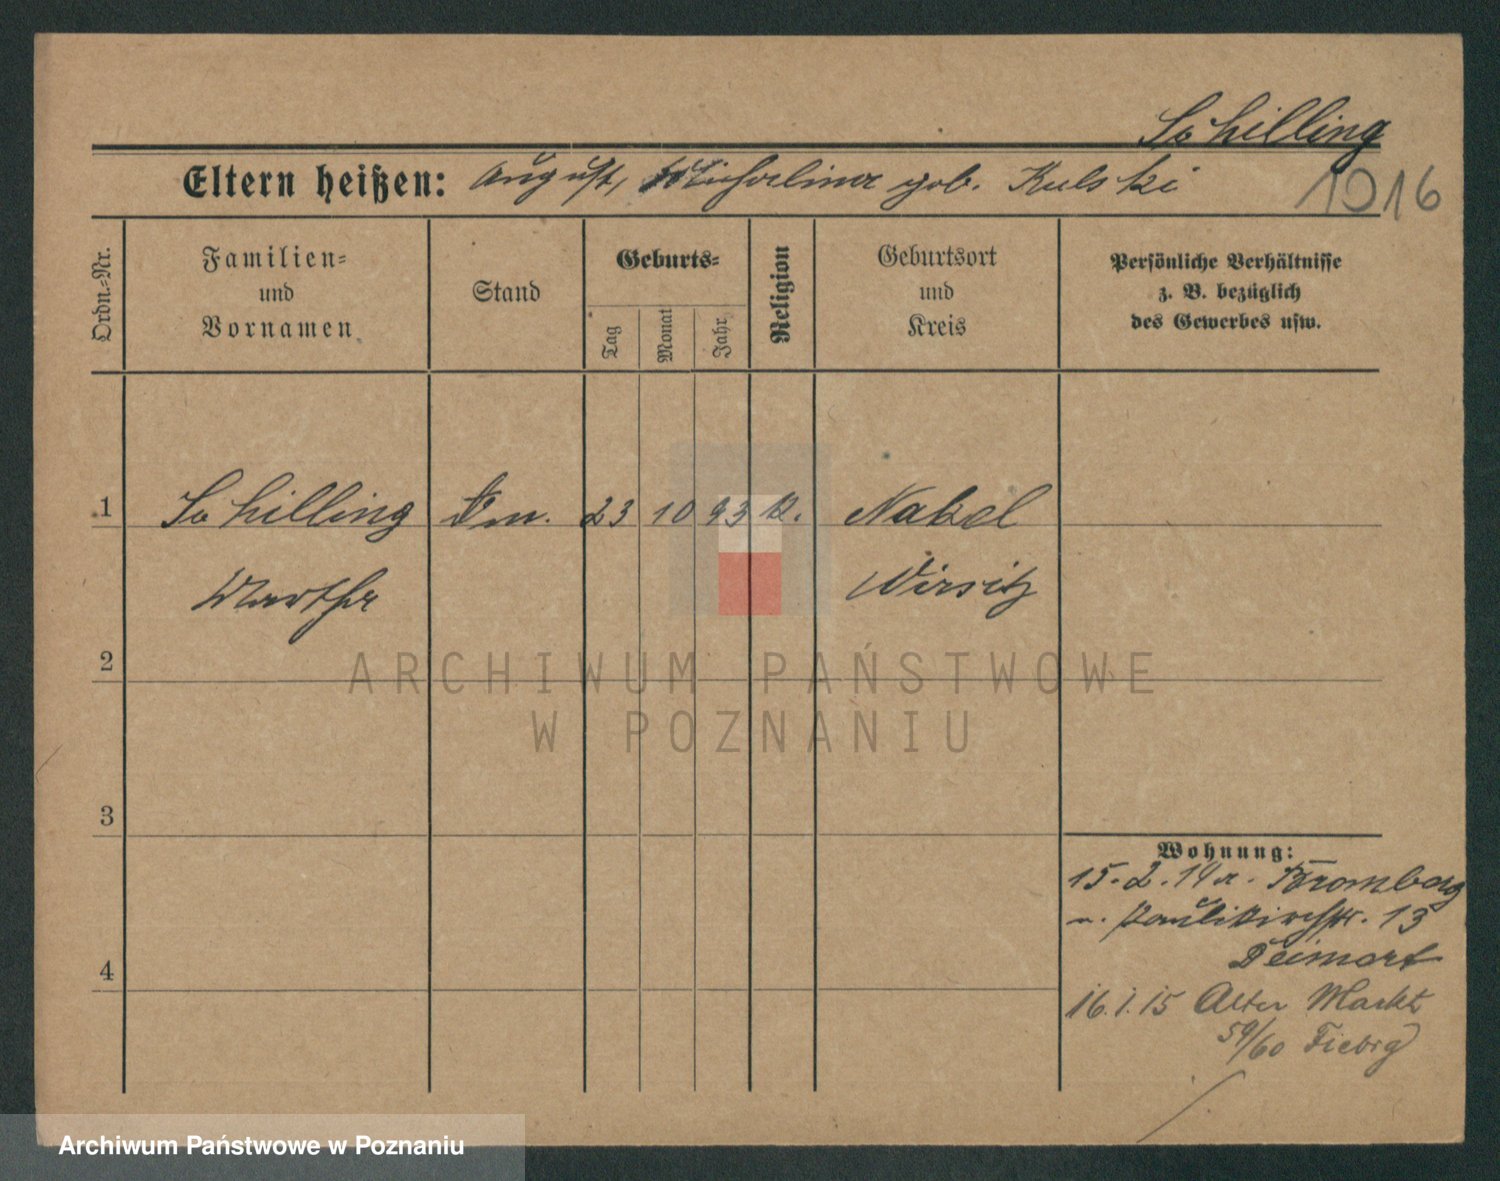 Schilling
Eltern heißen: August, Michalina geb. Kulski
1916
Ordn.-Nr.
Familien-
und
Vornamen
Stand
Geburts-
Tag
Monat
Jahr
Religion
Geburtsort
und
Kreis
Persönliche Verhältnisse
z. B. bezüglich
des Gewerbes usw.
1 Schilling 23 10 93 k. Nakel
Martha Wirsitz
2
ARCHIWUM PAŃSTWOWE
W POZNANIU
3
4
Wohnung:
15.2.14 Bromberg
Paulikirchstr. 13
16.1.15 Alter Markt
59/60 Fiebig
Archiwum Państwowe w Poznaniu